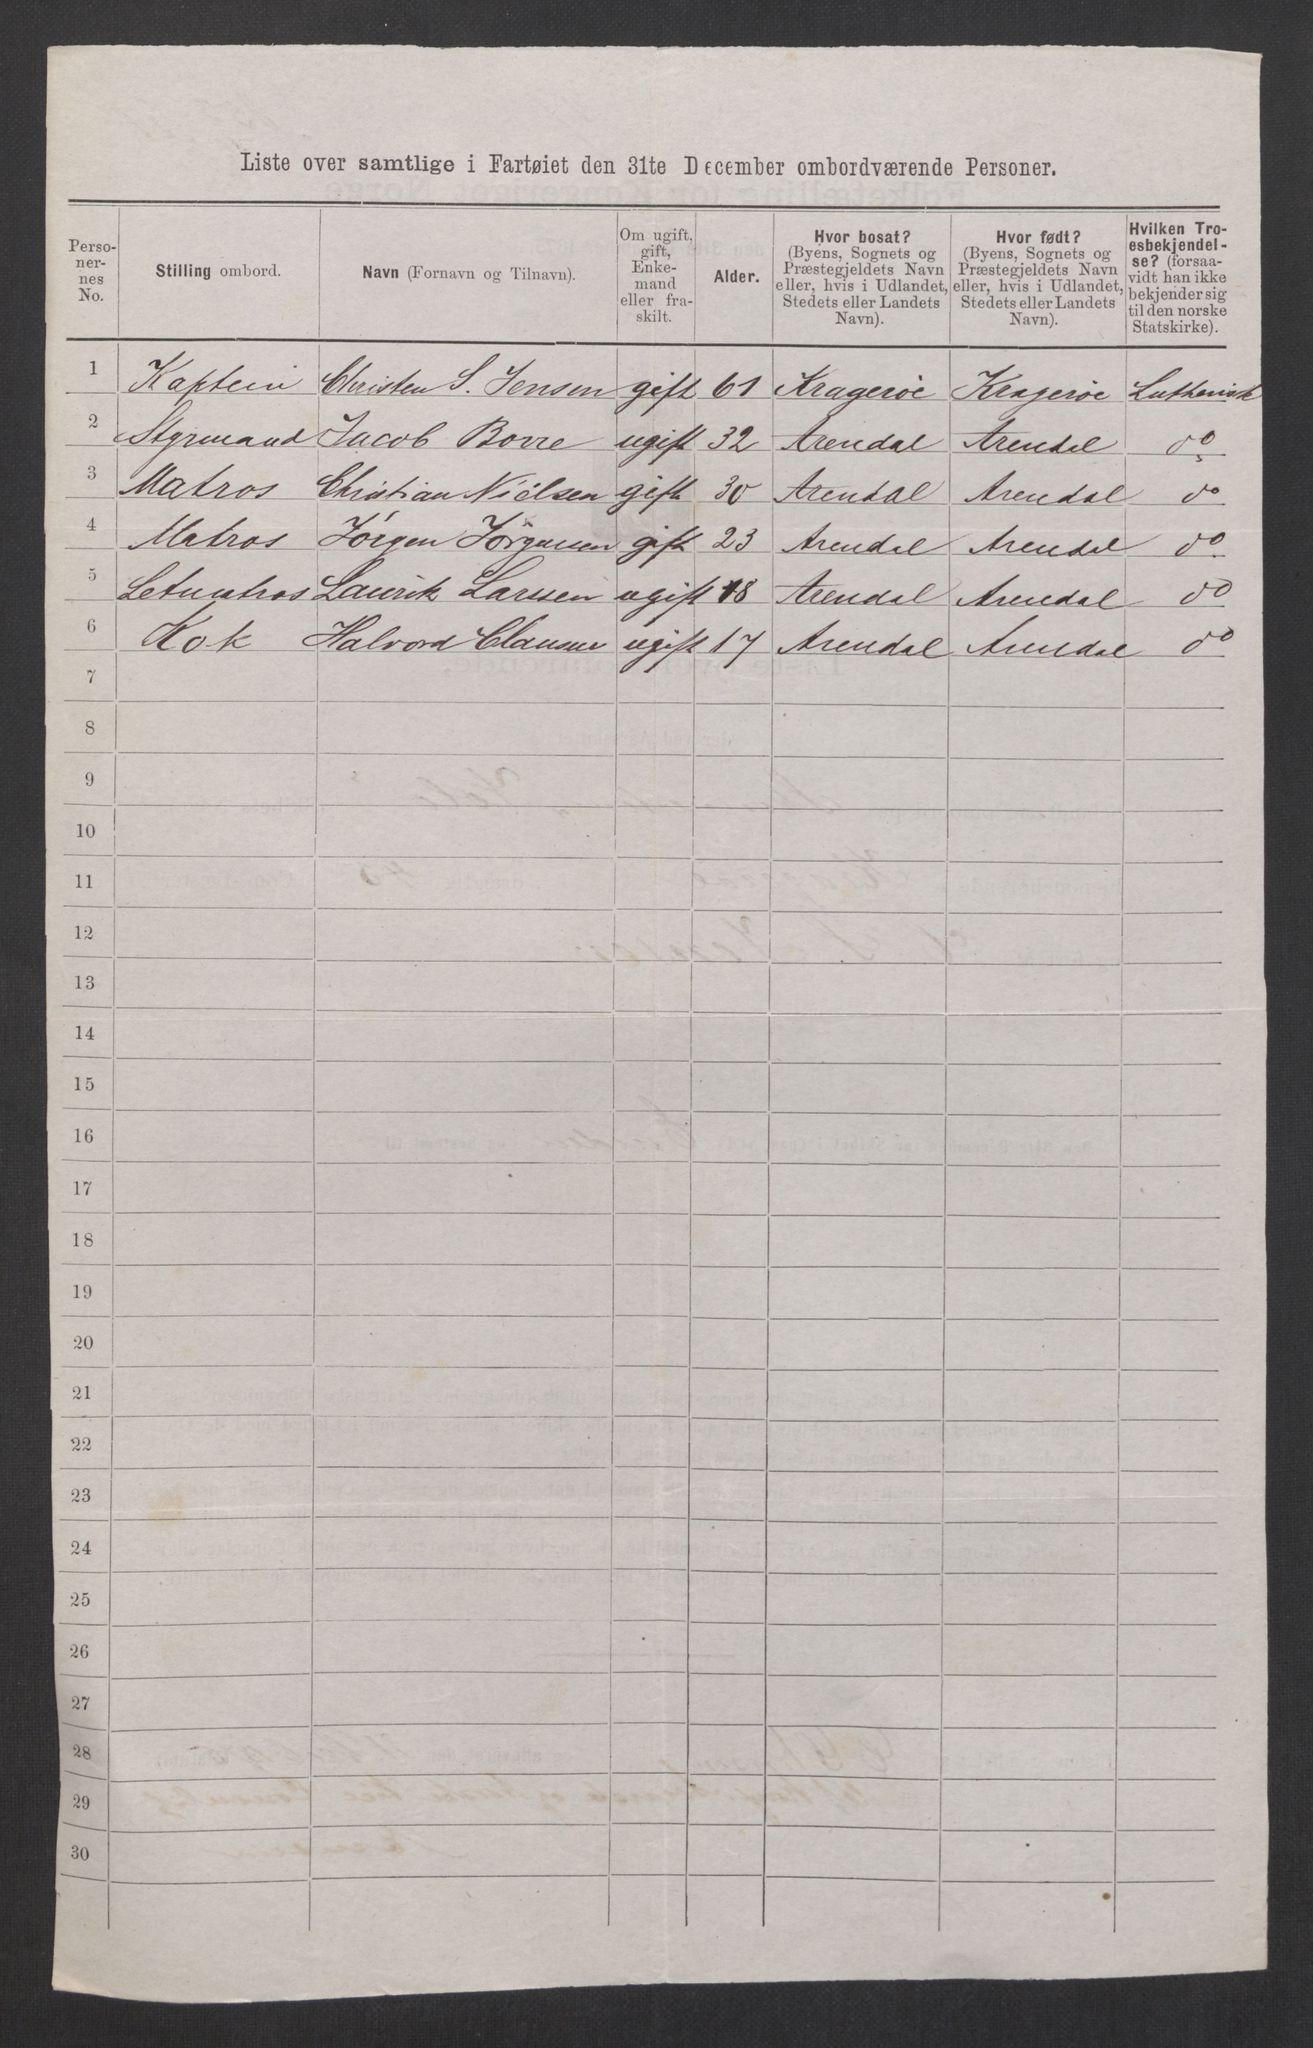 Liste over samtlige i Fartøiet den 31te December ombordværende Personer.
Perso-
ner-
nes
No.
Stilling ombord.
Navn (Fornavn og Tilnavn).
Om ugift,
gift,
Enke-
mand
eller fra-
skilt.
Alder.
Hvor bosat?
(Byens, Sognets og
Præstegjeldets Navn
eller, hvis i Udlandet,
Stedets eller Landets
Navn).
Hvor født?
(Byens, Sognets og
Præstegjeldets Navn
eller, hvis i Udlandet,
Stedets eller Landets
Navn).
Hvilken Tro-
esbekjendel-
se? (forsaa-
vidt han ikke
bekjender sig
til den norske
Statskirke).
1 Kaptein Christen S. Jensen gift 61 Kragerøe Kragerøe Luthersk
2 Styrmand Jacob Borre ugift 32 Arendal Arendal do
3 Matros Christian Nielsen gift 30 Arendal Arendal do
4 Matros Jörgen Jörgensen gift 23 Arendal Arendal do
5 Letmatros Laurik Larssen ugift 18 Arendal Arendal do
6 Kok Halvord Clausen ugift 17 Arendal Arendal do
7
8
9
10
11
12
13
14
15
16
17
18
19
20
21
22
23
24
25
26
27
28
29
30